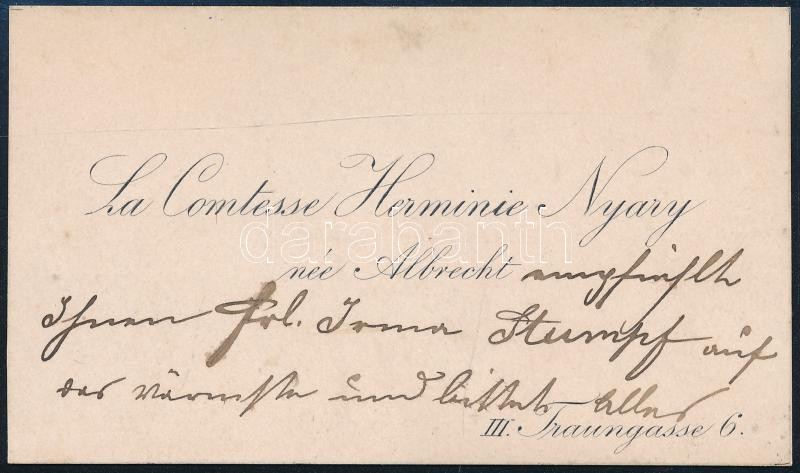 La Comtesse Herminie Nyary
née Albrecht empfiehlt
Ihnen Frl. Irma Stumpf auf
das wärmste und bittet alles
III. Traungasse 6.
darabanth